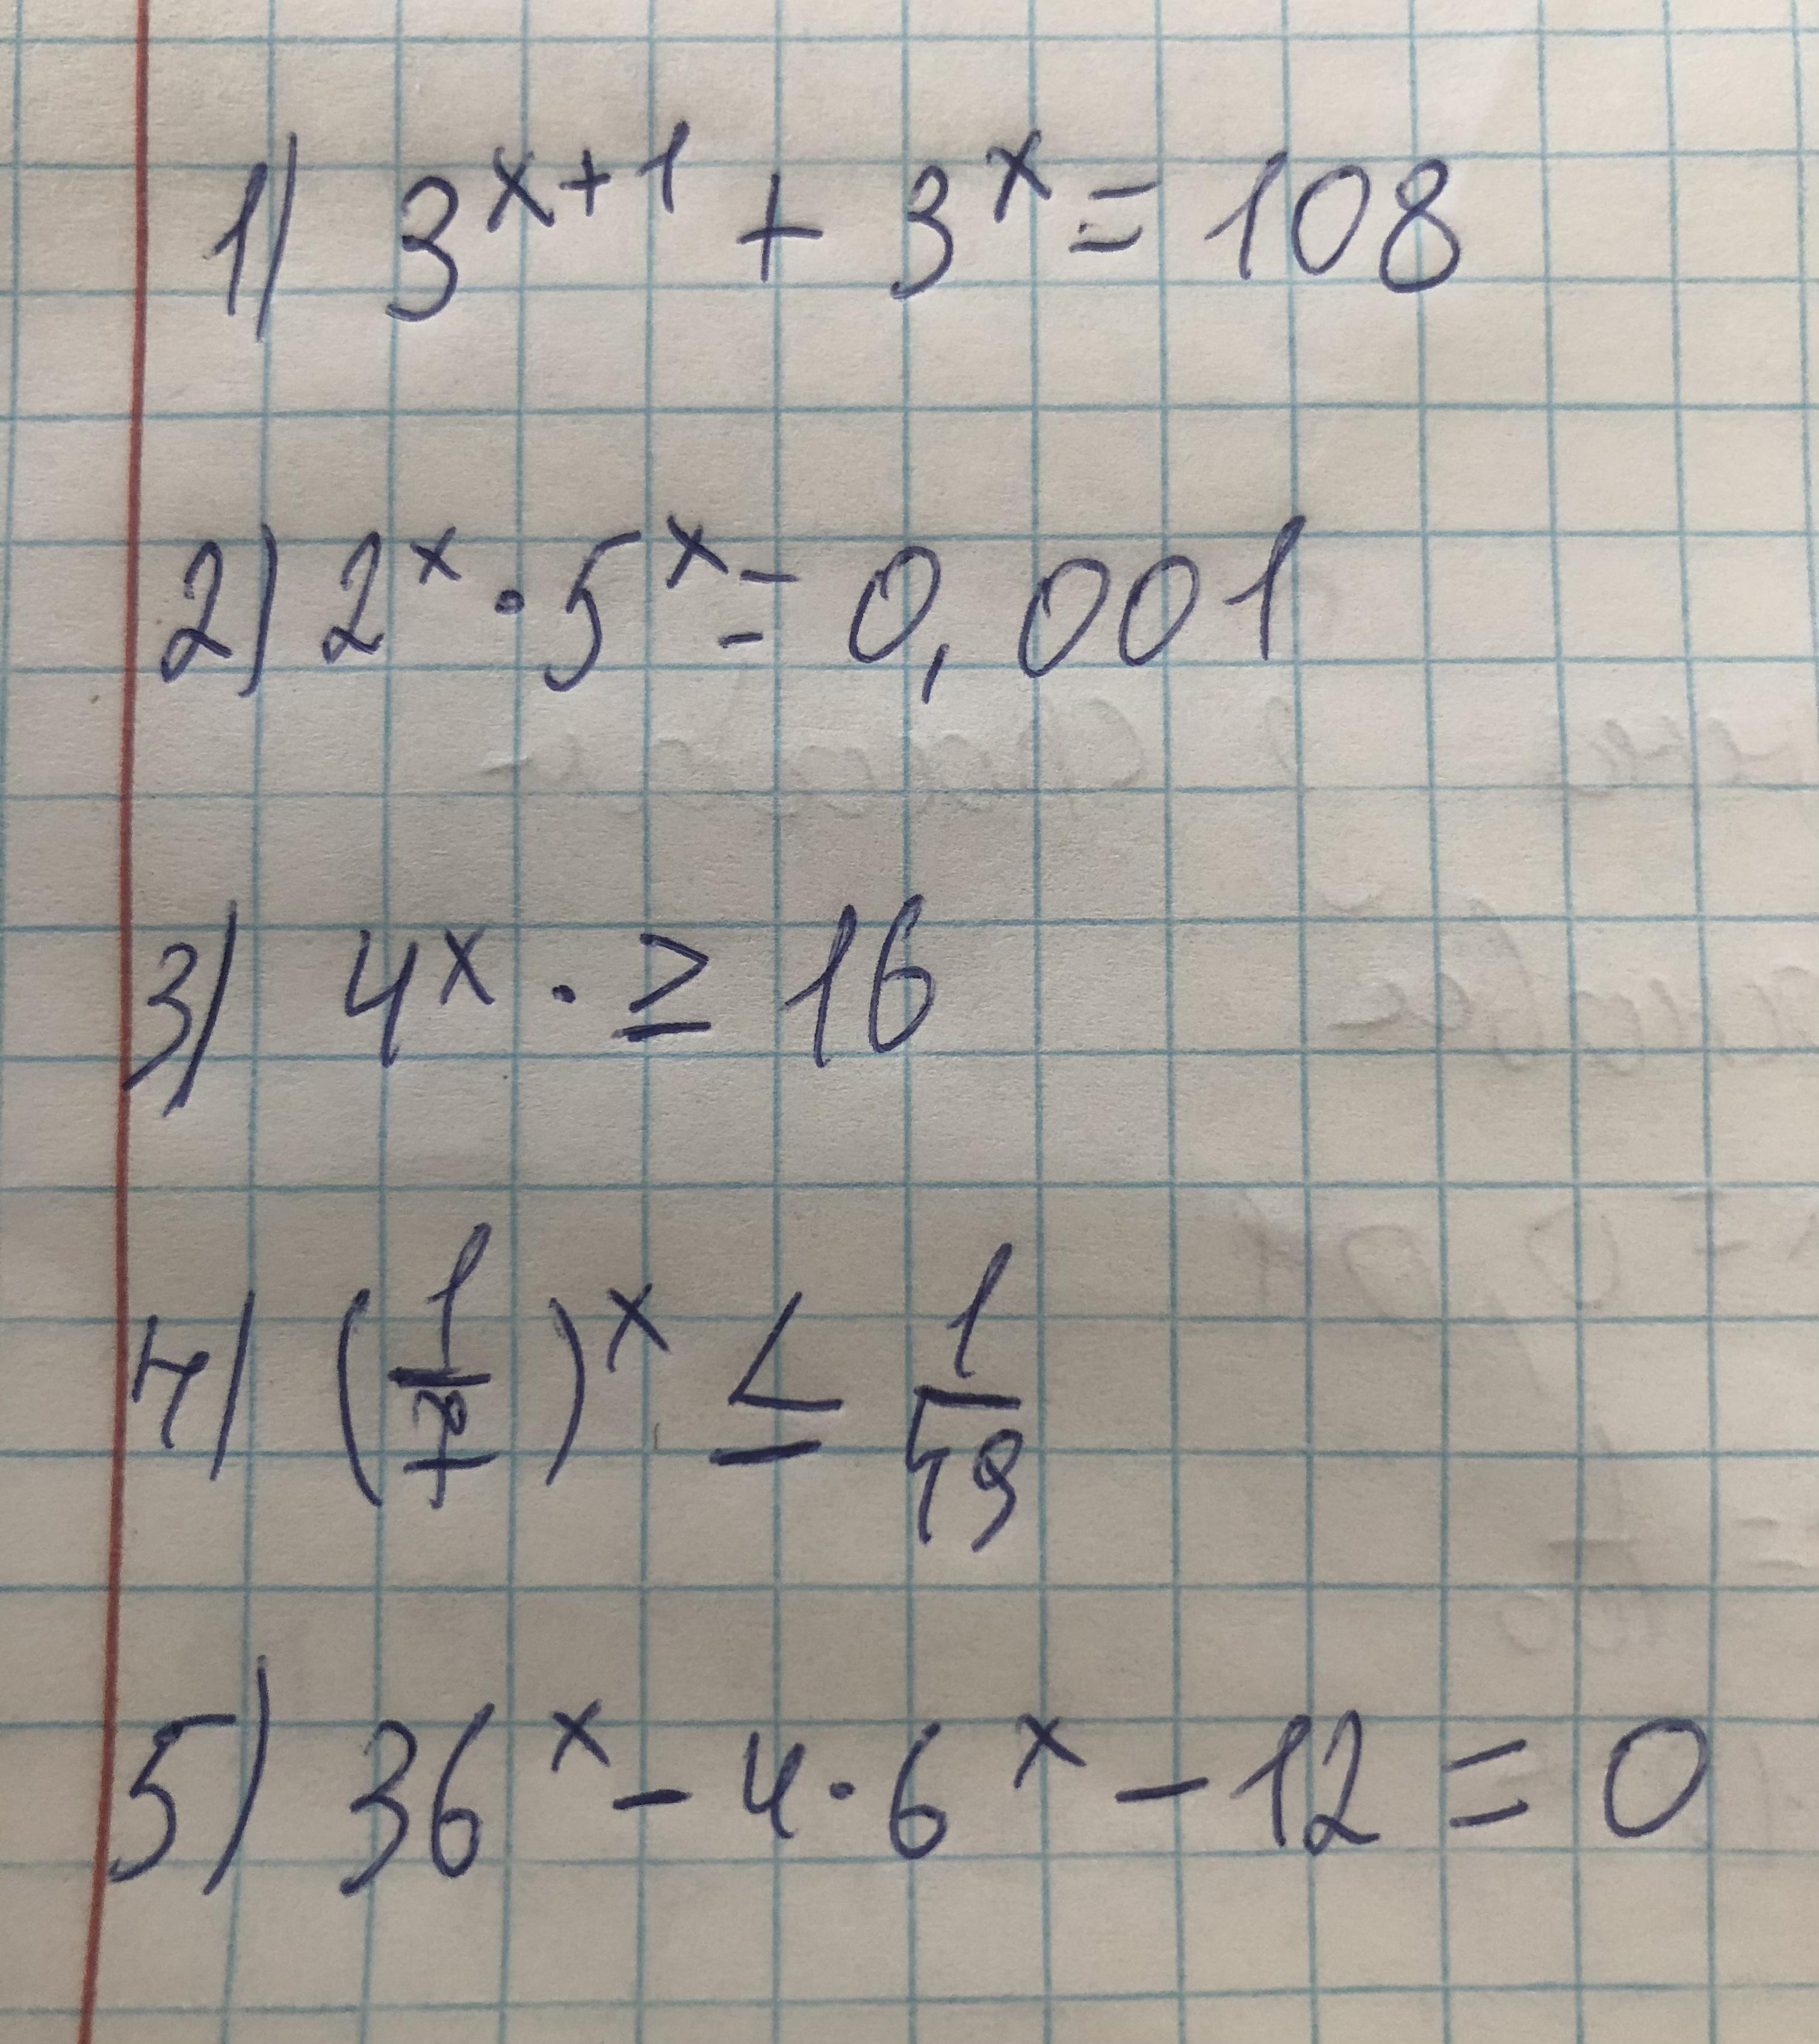 1) 3^(x+1) + 3^x = 108
2) 2^x · 5^x = 0,001
3) 4^x · ≥ 16
4) (1/7)^x ≤ 1/49
5) 36^x - 4 · 6^x - 12 = 0